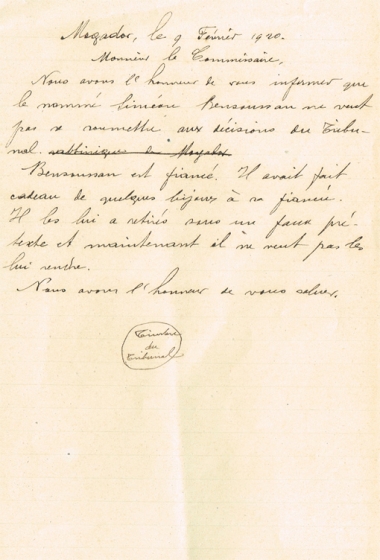 Mogador, le 9 Février 1920.
Monsieur le Commissaire,
Nous avons l'honneur de vous informer que
le nommé Siméon Bensoussan ne veut
pas se soumettre aux décisions du Tribu-
nal rabbinique de Mogador
Bensoussan est fiancé. Il avait fait
cadeau de quelques bijoux à sa fiancée.
Il les lui a retirés sous un faux pré-
texte et maintenant il ne veut pas les
lui rendre.
Nous avons l'honneur de vous saluer.
Timbre
du
Tribunal